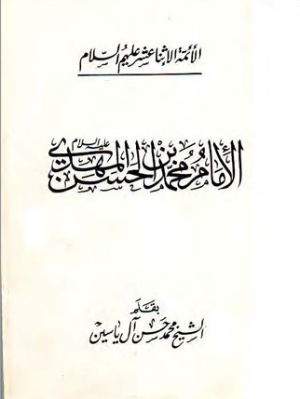 الأئمة الاثنا عشر عليهم السلام
الإمام محمد بن الحسن المهدي عليه السلام
بقلم
الشيخ محمد حسن آل ياسين